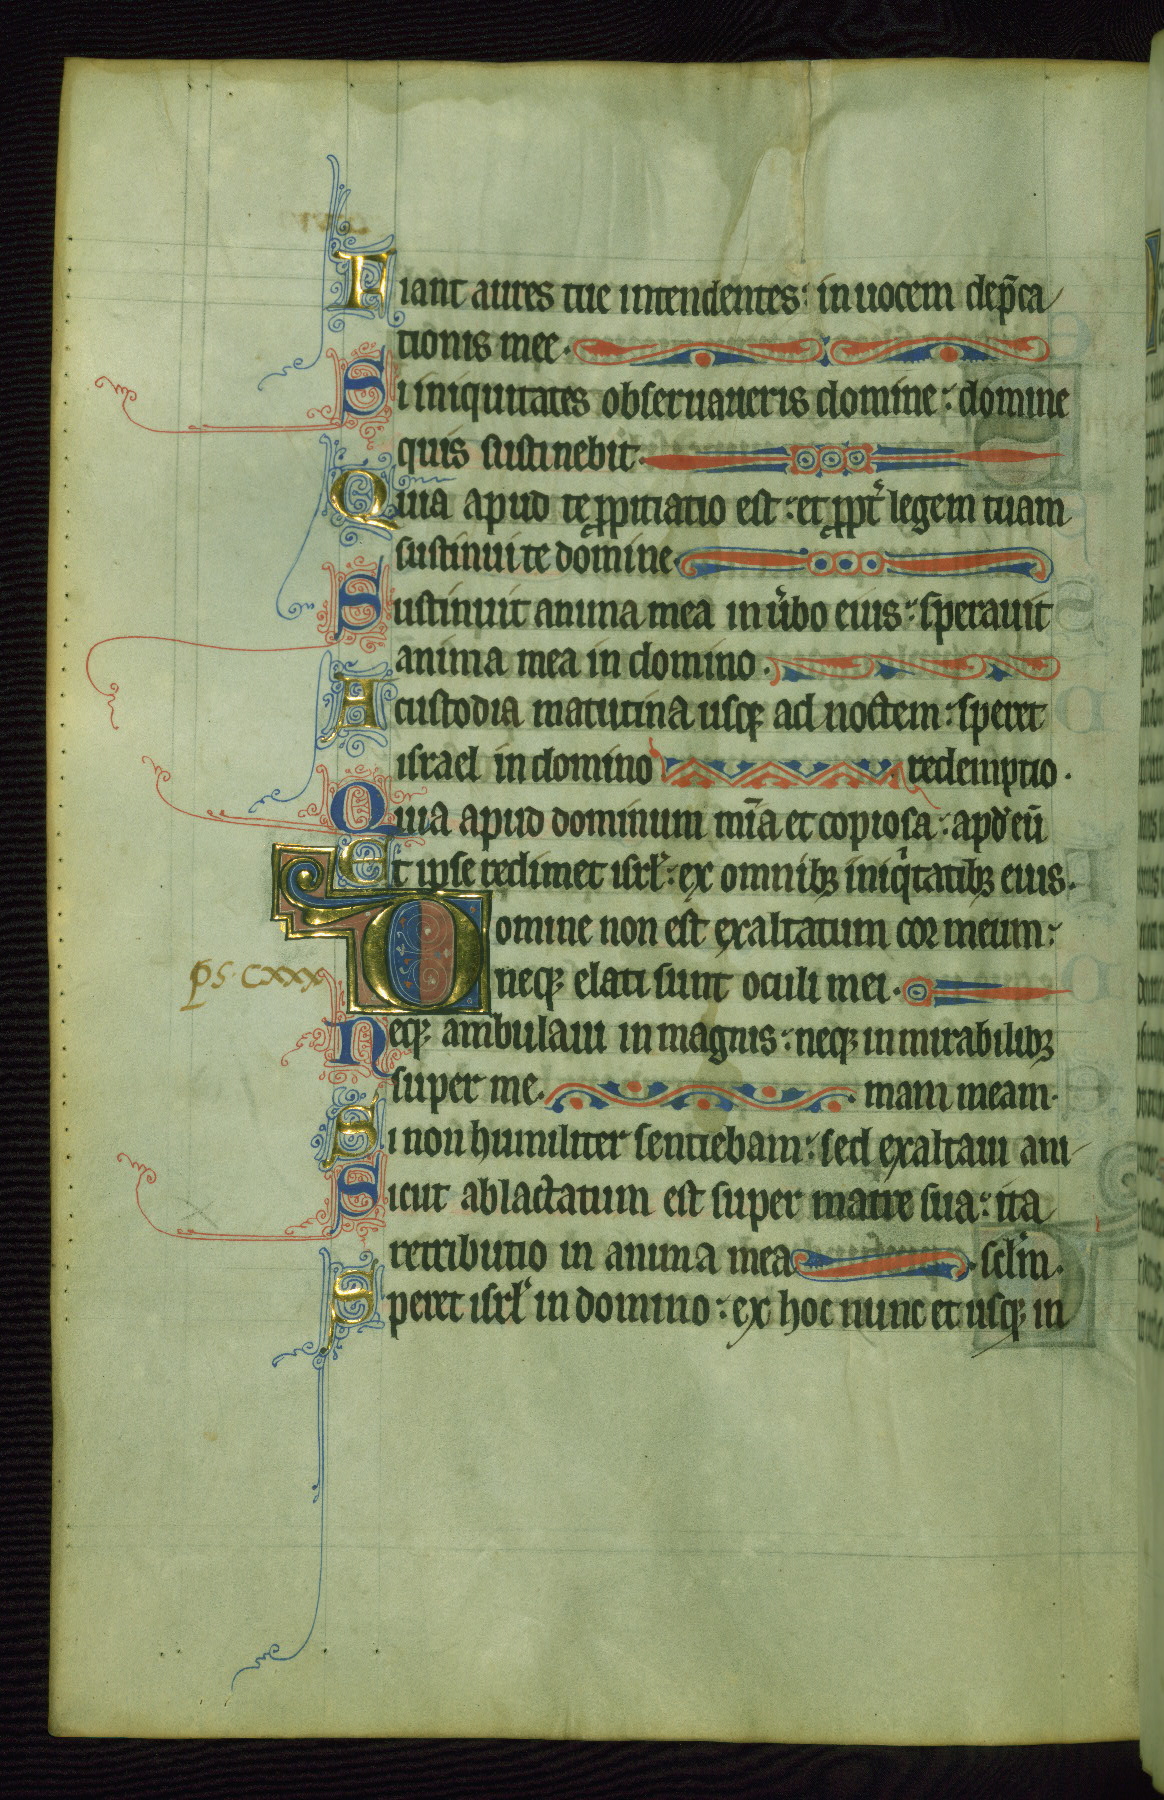 Fiant aures tue intendentes: in uocem dep̄ca
tionis mee.
Si iniquitates obseruaueris domine: domine
quis sustinebit.
Quia apud te ꝓpitiatio est: et ꝓpt̉ legem tuam
sustinui te domine.
Sustinuit anima mea in u̓bo eius: sperauit
anima mea in domino.
A custodia matutina usqꝫ ad noctem: speret
israel in domino redemptio.
Quia apud dominum mīa et copiosa: apd̓ eū
Et ipse redimet isrl̓: ex omnibꝫ iniqͥtatibꝫ eius.
Domine non est exaltatum cor meum:
neqꝫ elati sunt oculi mei.
ps cxxx
Neqꝫ ambulaui in magnis: neqꝫ in mirabilibꝫ
super me. mam meam.
Si non humiliter sentiebam: sed exaltaui ani
Sicut ablactatum est super matre sua: ita
retributio in anima mea. sclm̓.
Speret isrl̓ in domino: ex hoc nunc et usqꝫ in